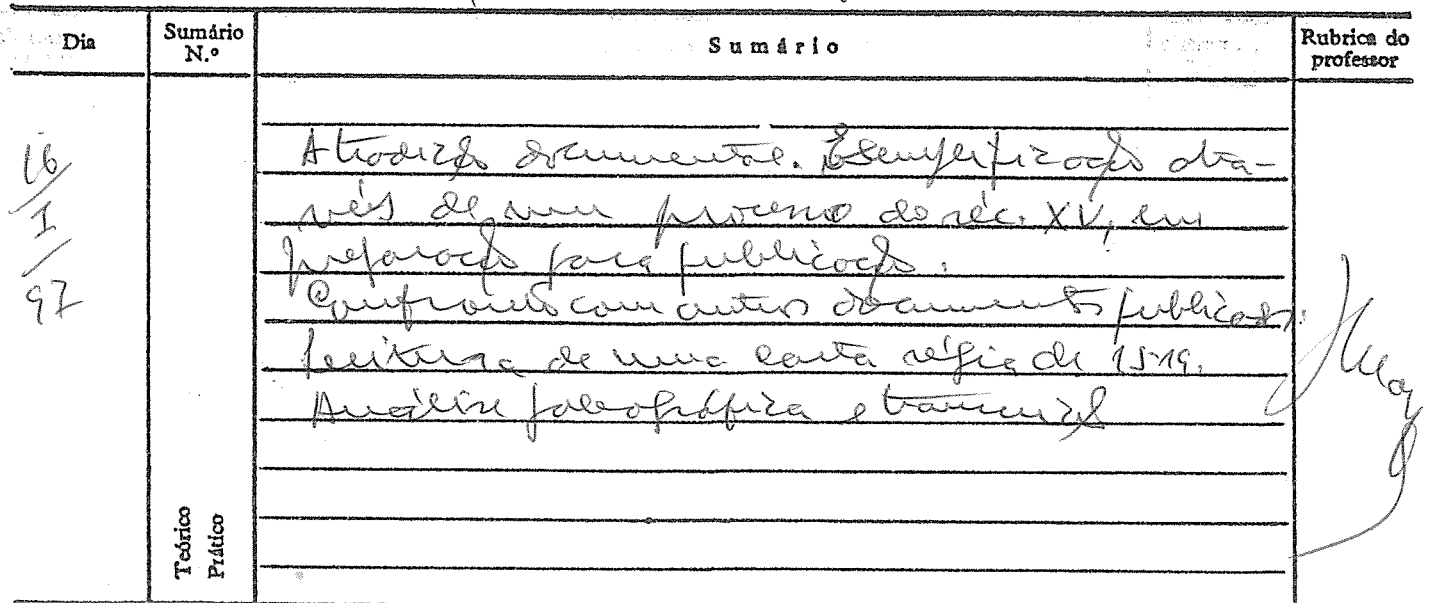 Dia
Sumário N.º
Sumário
Rubrica do professor
16/I/97
A tradição documental. Exemplificação atra-
vés de um processo do séc. XV, em
preparação para publicação.
Confronto com outros documentos publicados.
Leitura de uma carta régia de 1519.
Análise paleográfica e transcrição
Teórico
Prático